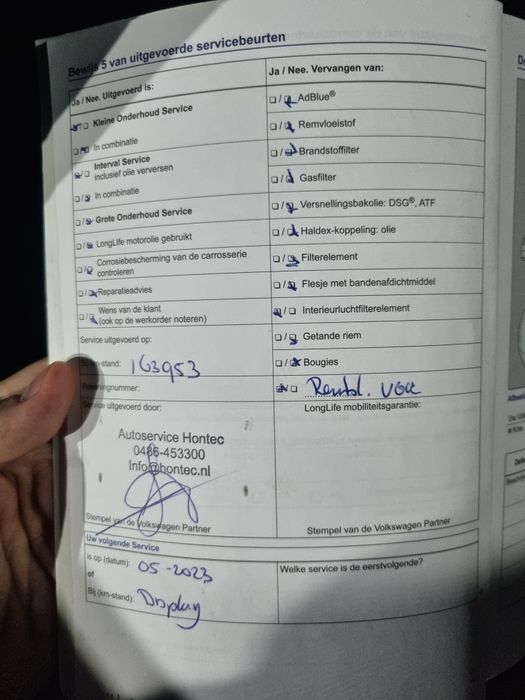 Bewijs 5 van uitgevoerde servicebeurten
Ja / Nee. Uitgevoerd is:
Kleine Onderhoud Service
In combinatie
Interval Service
inclusief olie verversen
In combinatie
Grote Onderhoud Service
LongLife motorolie gebruikt
Corrosiebescherming van de carrosserie
controleren
Reparatieadvies
Wens van de klant
(ook op de werkorder noteren)
Service uitgevoerd op:
km-stand: 163953
Rekeningnummer:
Service uitgevoerd door:
Autoservice Hontec
0486-453300
Info@hontec.nl
Stempel van de Volkswagen Partner
Uw volgende Service
is op (datum): 05-2023
of
Bij (km-stand): Display
Ja / Nee. Vervangen van:
AdBlue®
Remvloeistof
Brandstoffilter
Gasfilter
Versnellingsbakolie: DSG®, ATF
Haldex-koppeling: olie
Filterelement
Flesje met bandenafdichtmiddel
Interieurluchtfilterelement
Getande riem
Bougies
LongLife mobiliteitsgarantie:
Stempel van de Volkswagen Partner
Welke service is de eerstvolgende?